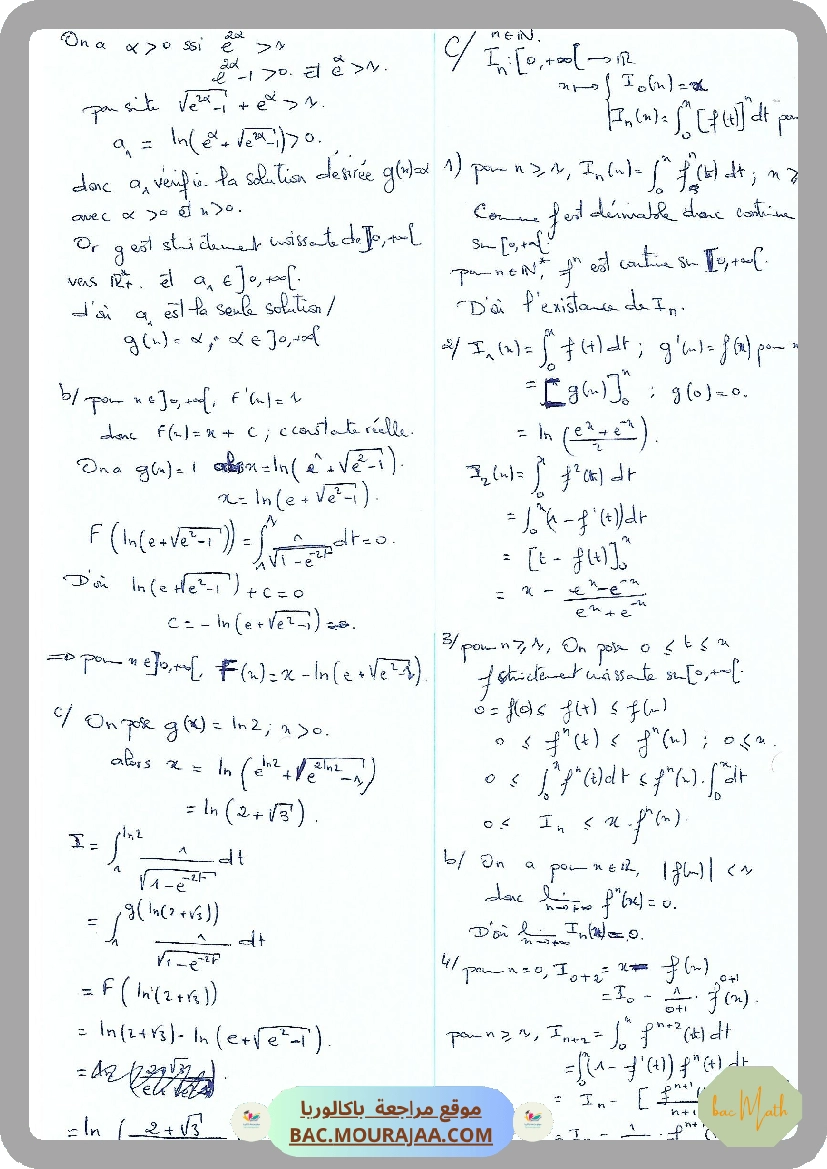 On a α > 0 ssi e^{2α} > 1
e^{2α} - 1 > 0. et e^α > 1.
par suite √(e^{2α}-1) + e^α > 1.
a₁ = ln(e^α + √(e^{2α}-1)) > 0.
donc a₁ vérifie la solution désirée g(x)=α
avec α > 0 et x > 0.
Or g est strictement croissante de ]0,+∞[
vers ℝ*₊. et a₁ ∈ ]0,+∞[.
d'où a₁ est la seule solution /
g(x) = α, α ∈ ]0,+∞[
b/ pour x ∈ ]0,+∞[, F'(x) = 1
donc F(x) = x + c ; c constante réelle.
On a g(x) = 1 alors x = ln(e¹ + √(e²-1)).
x = ln(e + √(e²-1)).
F(ln(e+√(e²-1))) = ∫₁¹ 1/√(1-e^{-2t}) dt = 0.
D'où ln(e+√(e²-1)) + c = 0
c = - ln(e+√(e²-1))
=> pour x ∈ ]0,+∞[, F(x) = x - ln(e+√(e²-1)).
c/ On pose g(x) = ln2 ; x > 0.
alors x = ln(e^{ln2} + √(e^{2ln2} - 1))
= ln(2 + √3).
I = ∫₁^{ln2} 1/√(1-e^{-2t}) dt
= ∫₁^{g(ln(2+√3))} 1/√(1-e^{-2t}) dt
= F(ln(2+√3))
= ln(2+√3) - ln(e+√(e²-1)).
= ln ( 2+√3
C/ n ∈ ℕ.
I_n : [0,+∞[ → ℝ
x ↦ { I₀(x) = x
I_n(x) = ∫₀^x [f(t)]^n dt
1) pour n ≥ 1, I_n(x) = ∫₀^x f^n(t) dt ; n ≥
Comme f est dérivable donc continue
sur [0,+∞[
pour n ∈ ℕ*, f^n est continue sur [0,+∞[.
D'où l'existance de I_n.
2/ I₁(x) = ∫₀^x f(t) dt ; g'(x) = f(x) pour
= [g(x)]₀^x ; g(0) = 0.
= ln((e^x + e^{-x})/2).
I₂(x) = ∫₀^x f²(t) dt
= ∫₀^x (1 - f'(t)) dt
= [t - f(t)]₀^x
= x - (e^x - e^{-x})/(e^x + e^{-x})
3/ pour n ≥ 1, On pose 0 ≤ t ≤ x
f strictement croissante sur [0,+∞[.
0 = f(0) ≤ f(t) ≤ f(x)
0 ≤ f^n(t) ≤ f^n(x) ; 0 ≤ x.
0 ≤ ∫₀^x f^n(t) dt ≤ f^n(x) · ∫₀^x dt
0 ≤ I_n ≤ x · f^n(x).
b/ On a pour x ∈ ℝ, |f(x)| < 1
donc lim_{n→+∞} f^n(x) = 0.
D'où lim_{n→+∞} I_n(x) = 0.
4/ pour n = 0, I_{0+2} = x - f(x)
= I₀ - 1/(0+1) · f^{0+1}(x).
pour n ≥ 1, I_{n+2} = ∫₀^x f^{n+2}(t) dt
= ∫₀^x (1 - f'(t)) f^n(t) dt
= I_n - [ f^{n+1}
bac Math
موقع مراجعة باكالوريا
BAC.MOURAJAA.COM